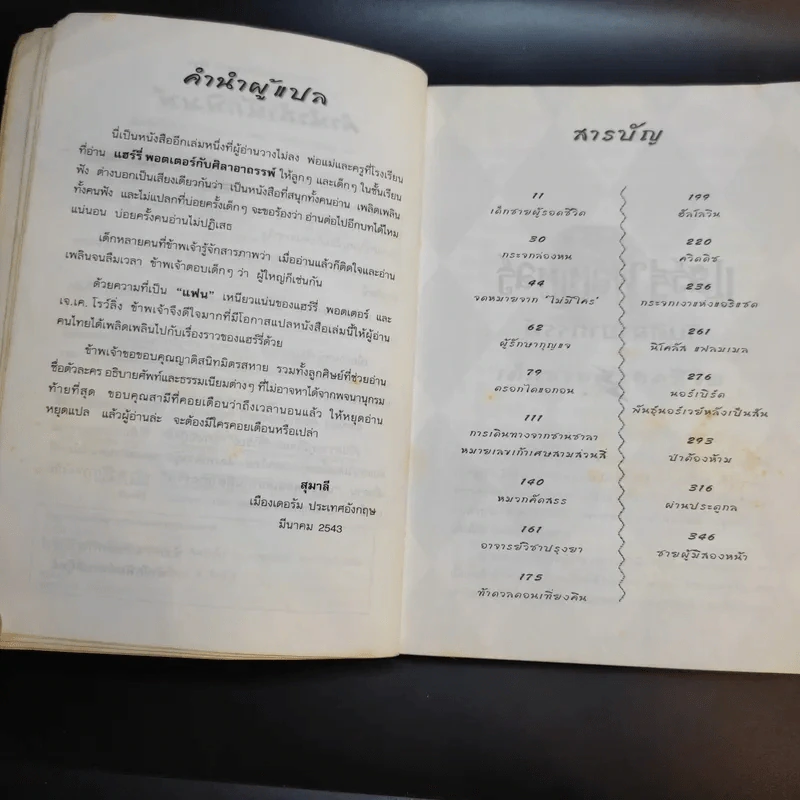 คำนำผู้แปล
นี่เป็นหนังสืออีกเล่มหนึ่งที่ผู้อ่านวางไม่ลง พ่อแม่และครูที่โรงเรียน
ที่อ่าน แฮร์รี่ พอตเตอร์กับศิลาอาถรรพ์ ให้ลูกๆ และเด็กๆ ในชั้นเรียน
ฟัง ต่างบอกเป็นเสียงเดียวกันว่า เป็นหนังสือที่สนุกทั้งคนอ่าน เพลิดเพลิน
ทั้งคนฟัง และไม่แปลกที่บ่อยครั้งเด็กๆ จะขอร้องว่า อ่านต่อไปอีกบทได้ไหม
แน่นอน บ่อยครั้งคนอ่านไม่ปฏิเสธ
เด็กหลายคนที่ข้าพเจ้ารู้จักสารภาพว่า เมื่ออ่านแล้วก็ติดใจและอ่าน
เพลินจนลืมเวลา ข้าพเจ้าตอบเด็กๆ ว่า ผู้ใหญ่ก็เช่นกัน
ด้วยความที่เป็น “แฟน” เหนียวแน่นของแฮร์รี่ พอตเตอร์ และ
เจ.เค. โรว์ลิ่ง ข้าพเจ้าจึงดีใจมากที่มีโอกาสแปลหนังสือเล่มนี้ให้ผู้อ่าน
คนไทยได้เพลิดเพลินไปกับเรื่องราวของแฮร์รี่ด้วย
ข้าพเจ้าขอขอบคุณญาติสนิทมิตรสหาย รวมทั้งลูกศิษย์ที่ช่วยอ่าน
ชื่อตัวละคร อธิบายศัพท์และธรรมเนียมต่างๆ ที่ไม่อาจหาได้จากพจนานุกรม
ท้ายที่สุด ขอบคุณสามีที่คอยเตือนว่าถึงเวลานอนแล้ว ให้หยุดอ่าน
หยุดแปล แล้วผู้อ่านล่ะ จะต้องมีใครคอยเตือนหรือเปล่า
สุมาลี
เมืองเดอรัม ประเทศอังกฤษ
มีนาคม 2543
สารบัญ
11
เด็กชายผู้รอดชีวิต
30
กระจกล่องหน
44
จดหมายจาก 'ไม่มีใคร'
62
ผู้รักษากุญแจ
79
ตรอกไดแอกอน
111
การเดินทางจากชานชาลา
หมายเลขเก้าเศษสามส่วนสี่
140
หมวกคัดสรร
161
อาจารย์วิชาปรุงยา
175
ท้าดวลตอนเที่ยงคืน
199
ฮัลโลวีน
220
ควิดดิช
236
กระจกเงาแห่งแอริเซด
261
นิโคลัส แฟลมเมล
276
นอร์เบิร์ต
พันธุ์นอร์เวย์หลังเป็นสัน
293
ป่าต้องห้าม
316
ผ่านประตูกล
346
ชายผู้มีสองหน้า